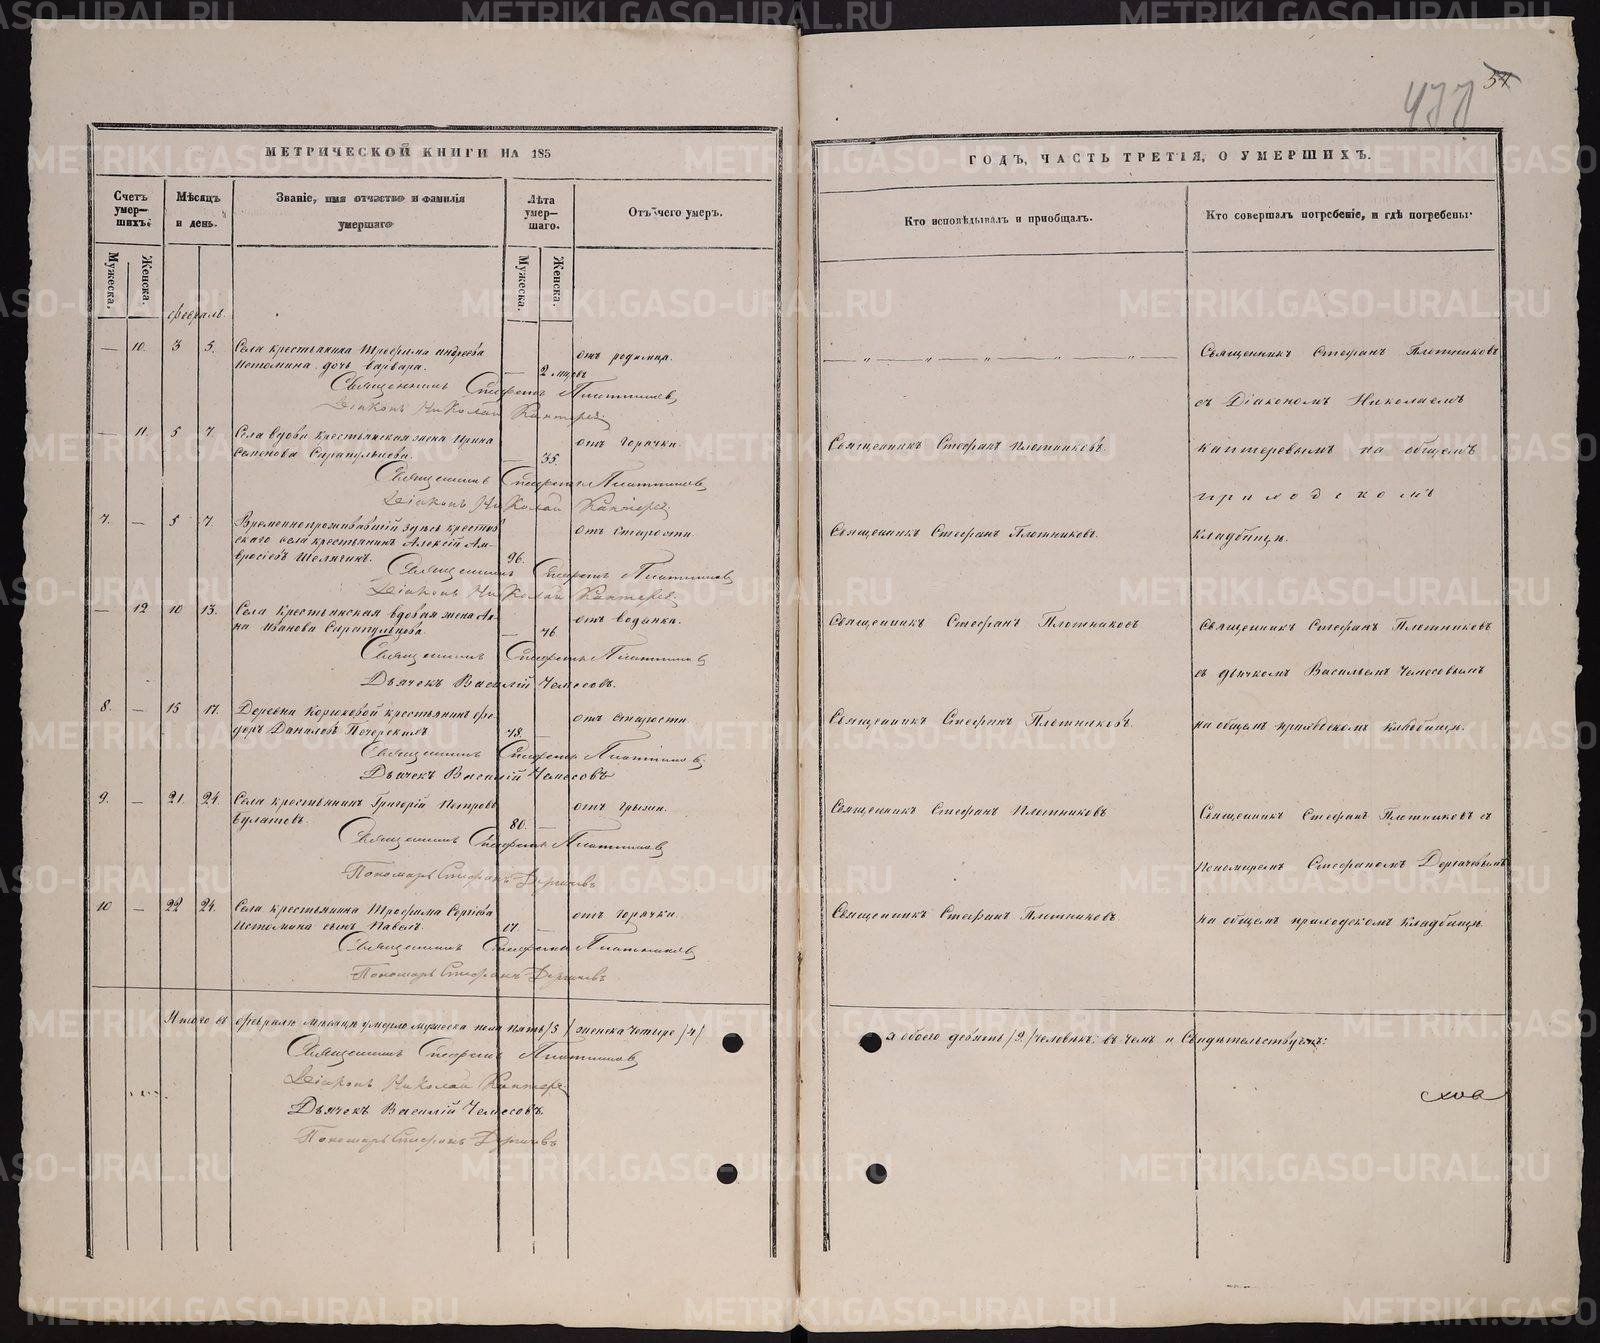 54
477
МЕТРИЧЕСКОЙ КНИГИ НА 185
ГОДЪ, ЧАСТЬ ТРЕТІЯ, О УМЕРШИХЪ.
Счетъ умер-
шихъ.
Мѣсяцъ
и день.
Званіе, имя отчество и фамилія
умершаго
Лѣта
умер-
шаго.
Отъ чего умеръ.
Кто исповѣдывалъ и приобщалъ.
Кто совершалъ погребеніе, и гдѣ погребены.
Мужеска.
Женска.
Мужеска.
Женска.
февраль.
— 10. 3 5. Села крестьянина Трофима Андреева
Истомина дочь Варвара. — 2 мцсвъ отъ родимца.
Священникъ Стефанъ Плотниковъ
Діаконъ Николай Каптеревъ
Священникъ Стефанъ Плотниковъ
съ Діакономъ Николаемъ
— 11. 5 7. Села вдова крестьянская жена Ирина
Семенова Сарапульцова. — 35. отъ горячки.
Священникъ Стефанъ Плотниковъ
Діаконъ Николай Каптеревъ
Священникъ Стефанъ Плотниковъ.
Каптеревымъ на общемъ
приходскомъ
7. — 5 7. Временнопроживавшій здѣсь крестов-
скаго села крестьянинъ Алексій Ам-
вросіевъ 96. отъ старости
Священникъ Стефанъ Плотниковъ
Діаконъ Николай Каптеревъ
Священникъ Стефанъ Плотниковъ.
кладбищѣ.
— 12 10 13. Села крестьянская вдовая жена Ан-
на Иванова Сарапульцова. — 76. отъ водянки.
Священникъ Стефанъ Плотниковъ
Дьячекъ Василій Чемесовъ.
Священникъ Стефанъ Плотниковъ
Священникъ Стефанъ Плотниковъ
съ дьячкомъ Васильемъ Чемесовымъ
на общемъ приходскомъ кладбищѣ.
8. — 15 17. Деревни Корюковой крестьянинъ Фе-
доръ Даниловъ 78. — отъ старости
Священникъ Стефанъ Плотниковъ
Дьячекъ Василій Чемесовъ
Священникъ Стефанъ Плотниковъ.
9. — 21. 24. Села крестьянинъ Григорій Петровъ
Булатовъ. 80. — отъ грызи.
Священникъ Стефанъ Плотниковъ
Пономарь Стефанъ Дергачевъ
Священникъ Стефанъ Плотниковъ
Священникъ Стефанъ Плотниковъ съ
Пономаремъ Стефаномъ Дергачевымъ
на общемъ приходскомъ кладбищѣ.
10 — 22 24. Села крестьянина Трофима Сергіева
Истомина сынъ Павелъ. — отъ горячки.
Священникъ Стефанъ Плотниковъ
Пономарь Стефанъ Дергачевъ
Священникъ Стефанъ Плотниковъ.
Итого въ феврале месяце умерло мужеска пола пять /5/ женска четыре /4/
а обоего девять /9/ человѣкъ; въ чемъ и свидѣтельствуемъ:
Священникъ Стефанъ Плотниковъ
Діаконъ Николай Каптеревъ
Дьячекъ Василій Чемесовъ.
Пономарь Стефанъ Дергачевъ
METRIKI.GASO-URAL.RU